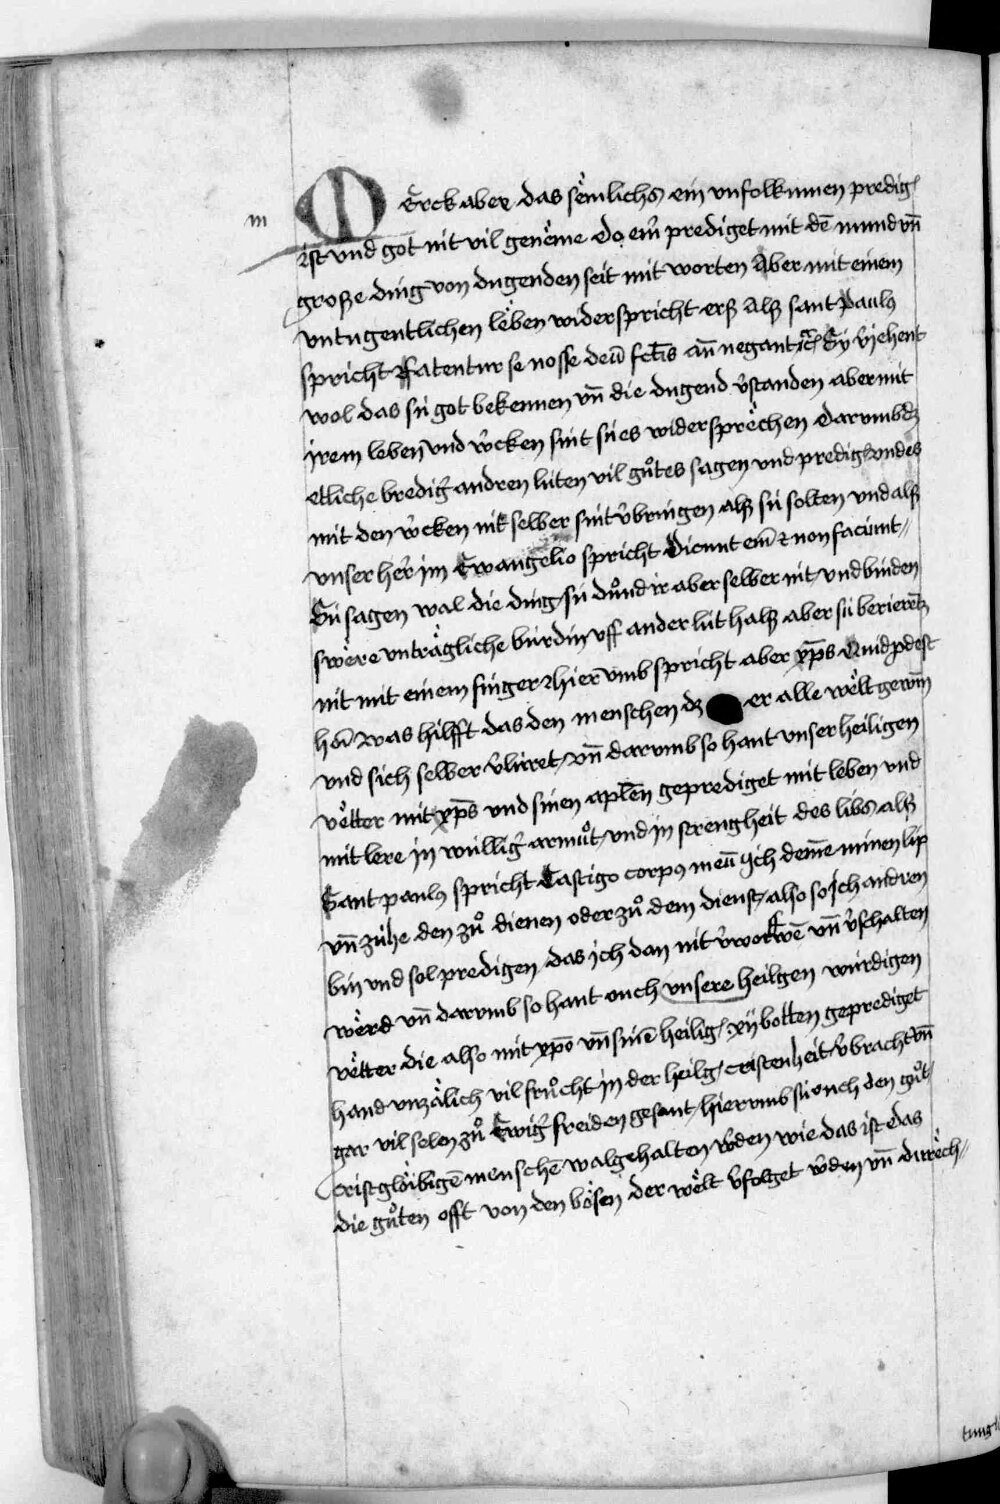 m
MErck aber das sëmlichs ein vnfolkumen predig
ist vnd got nit vil genëme do einr̄ prediget mit dē mund vn̄
große ding von dugenden seit mit worten Aber mit einem
vntugentlichen lëben widerspricht erß Alß sant Paulus
spricht Fatentur se nosse deū fct̄is aūt negant rc̄ Sy v̈iehent
wol das sú got bekennen vn̄ die dugend v̄standen aber mit
jrem leben vnd w̄cken sint sú es widersprëchen Darvmb dz
etliche brediḡ andren lúten vil gůtes sagen vnd predig vnd es
mit den w̄cken nit selber sint v̄bringen alß sú solten vnd alß
vnser her̄ jm Ewangelio spricht Dicunt em̄ et non faciunt
Sú sagen wal die ding sú důnd ir aber selber nit vnd binden
swëre vnträgliche búrdin vff ander lút halß aber sú berierēt
nit mit einem finger Hier vmb spricht aber xp̄s Quid pdest
hōi Was hilfft das den menschen dz er alle wëlt gewin̄
vnd sich selber v̄lúret vn̄ darvmb so hant vnser heiligen
vëtter mit xp̄s vnd sinen aplēn geprediget mit leben vnd
mit lere in williḡ armůt vnd in strengheit des libs alß
Sant paulus spricht Castigo corpus meū Ich deme minen lip
vn̄ zúhe den zů dienen oder zů dem dienst also so ich andren
bin vnd sol predigen das ich dan nit v̄worfē vn̄ v̄schalten
wërd vn̄ darvmb so hant ouch vnsere heilgen wúrdigen
vëtter die also mit xp̄o vn̄ sinē heilig xij botten geprediget
hand vnzälich vil frúcht in der heilg cristenheit v̄bracht vn̄
gar vil selen zů Ewiḡ freiden gesant hiervmb sú ouch den gůt
cristglöibigē menschē wal gehalten w̄den wie das ist das
die gůten offt von den bösen der wëlt v̄folget w̄den vn̄ durëch
tung